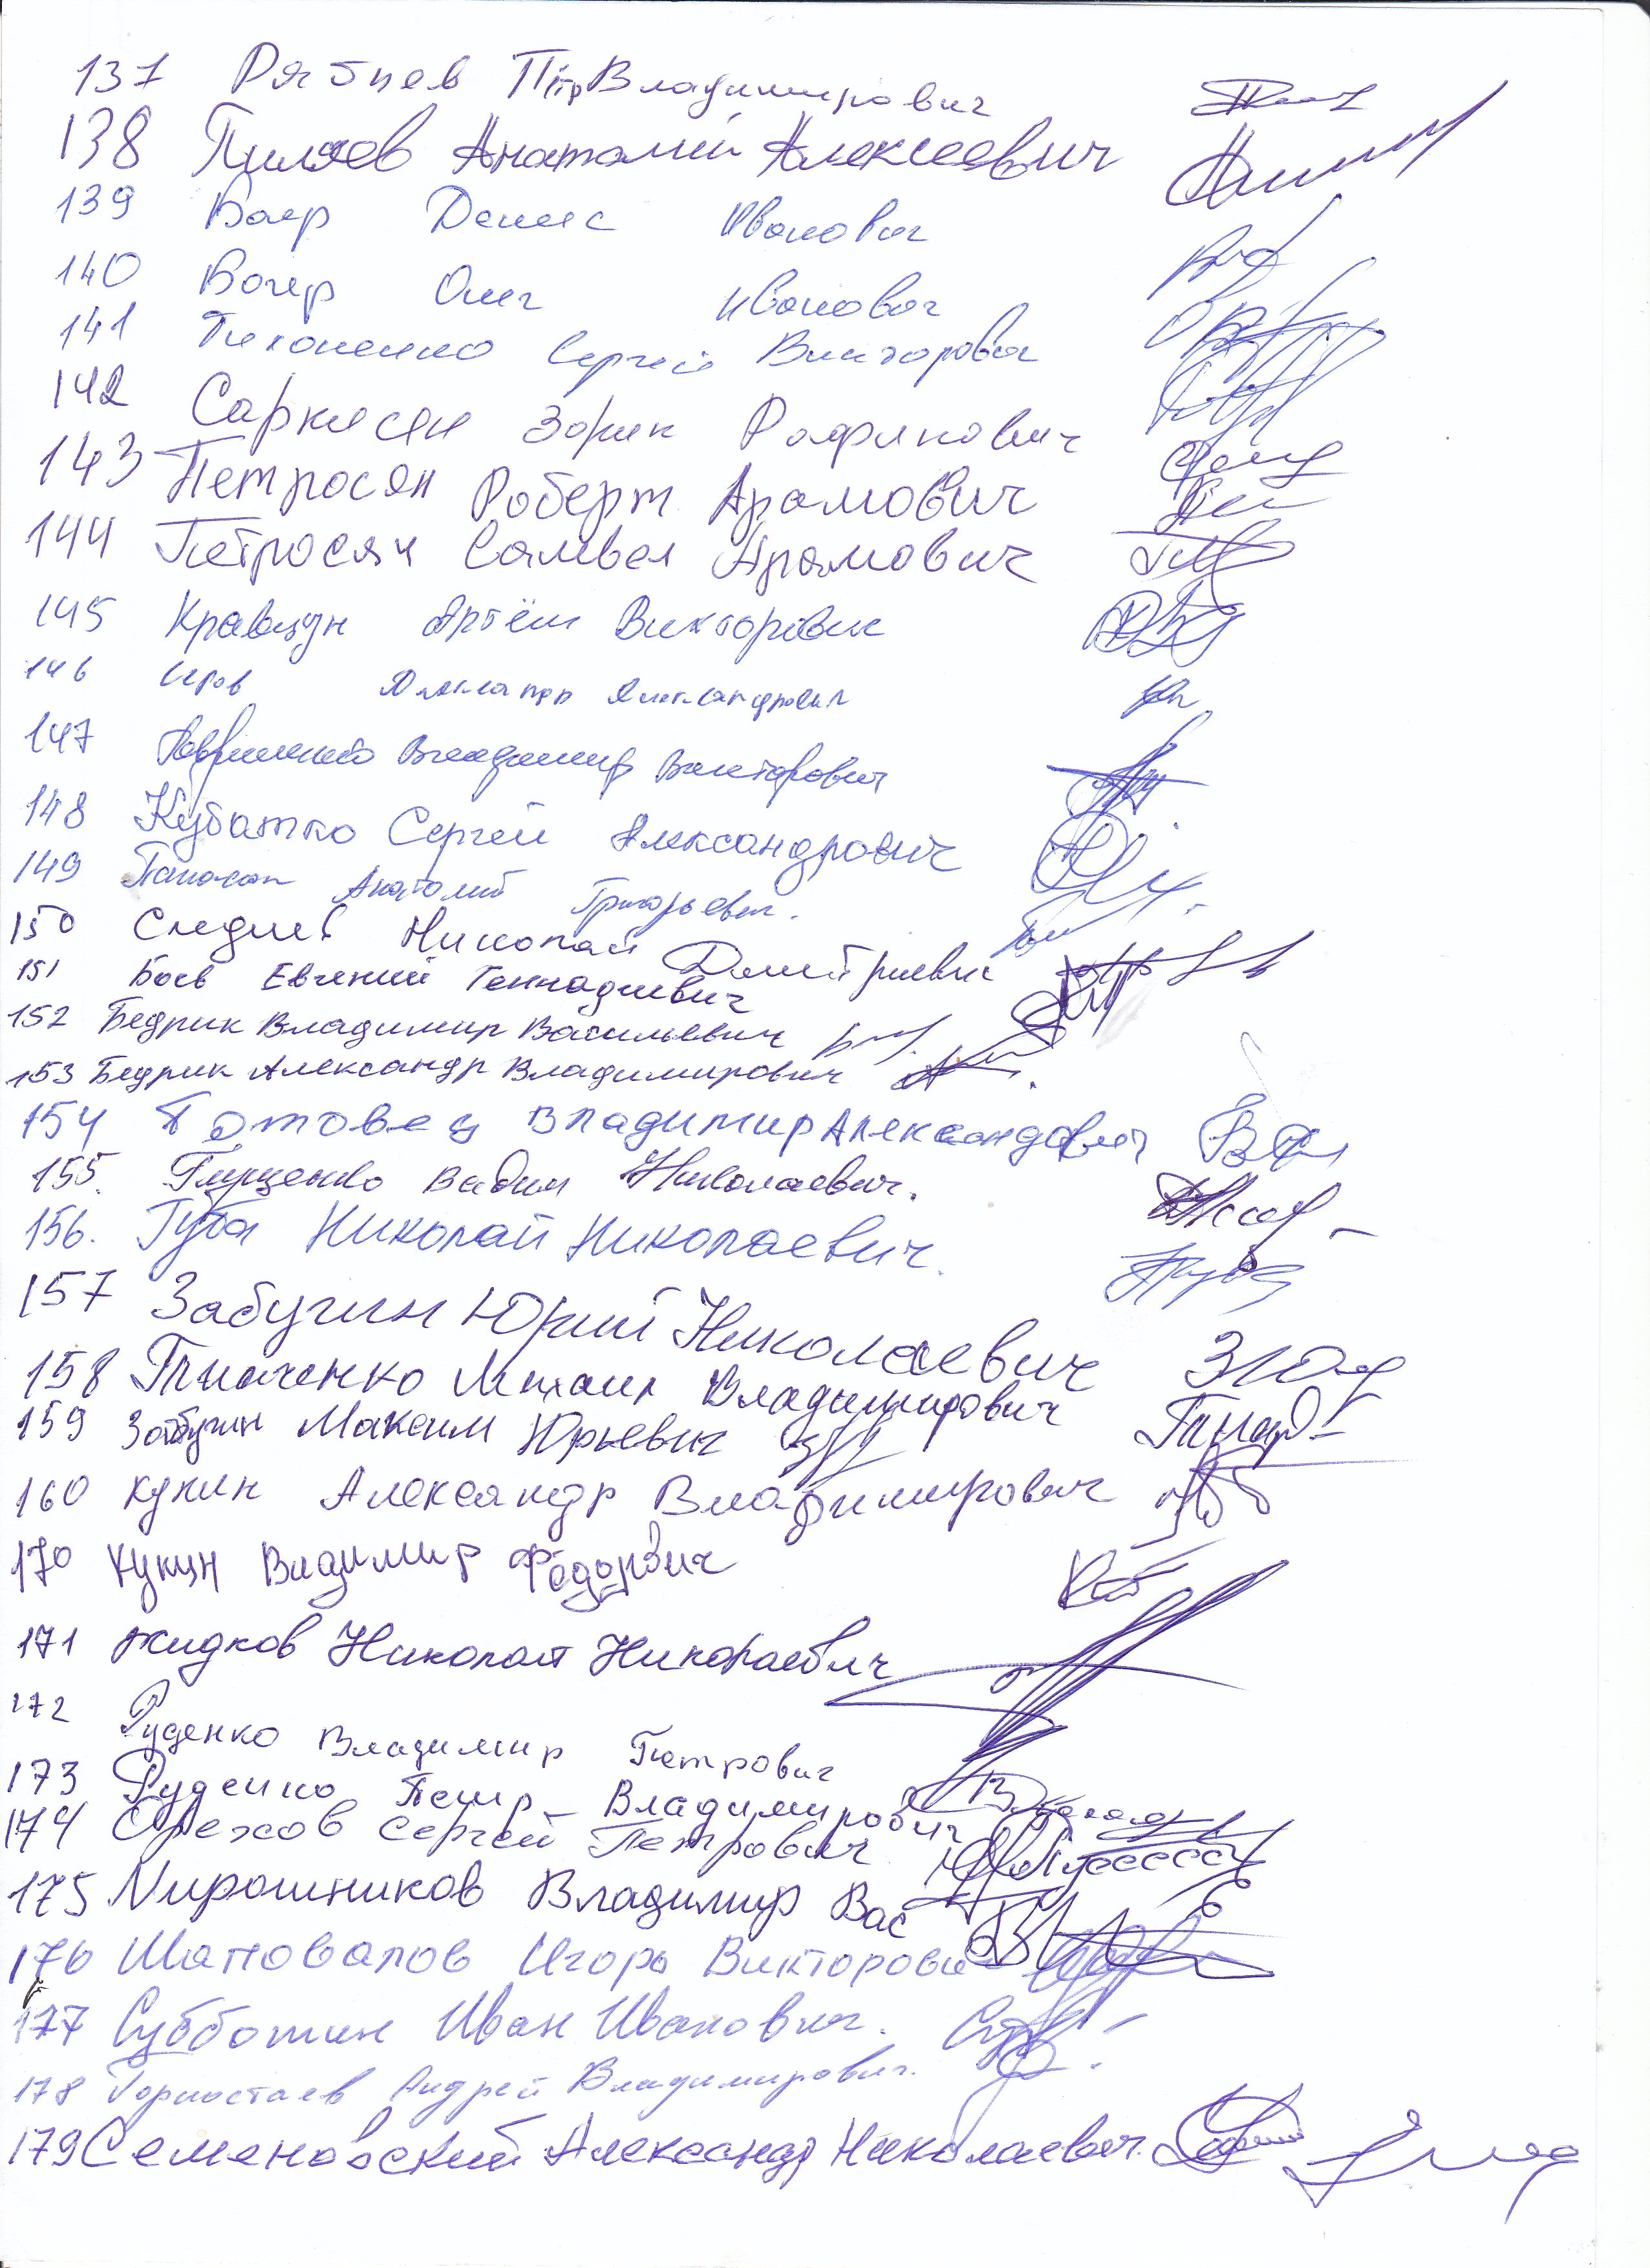 137 Рябцев Пётр Владимирович
138 Пиляев Анатолий Алексеевич
139 Ваер Денис Иванович
140 Вагер Олег Иванович
141 Тихоненко Сергей Викторович
142 Саркисян Зорик Рафикович
143 Петросян Роберт Арамович
144 Петросян Самвел Арамович
145 Кравцун Артём Викторович
146 Александр Александрович
147 Гавриленко Владимир Викторович
148 Кубатко Сергей Александрович
149 Анатолий Григорьевич.
150 Николай Дмитриевич
151 Боев Евгений Геннадиевич
152 Бедрик Владимир Васильевич
153 Бедрик Александр Владимирович
154 Владимир Александрович
155. Глущенко Вадим Николаевич.
156. Губа Николай Николаевич.
157 Забугин Юрий Николаевич
158 Михаил Владимирович
159 Забугин Максим Юрьевич
160 Кукин Александр Владимирович
170 Кукин Владимир Фёдорович
171 Жидков Николай Николаевич
172 Руденко Владимир Петрович
173 Руденко Петр Владимирович
174 Орехов Сергей Петрович
175 Мирошников Владимир Вас
176 Шаповалов Игорь Викторович
177 Субботин Иван Иванович.
178 Горностаев Андрей Владимирович.
179 Семеновский Александр Николаевич.